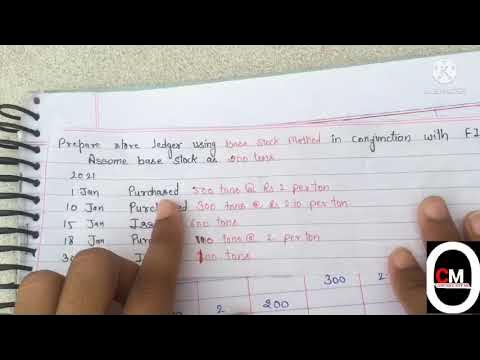 Prepare store ledger using Base Stock Method in conjunction with FI
Assume base stock as tons
2021
1 Jan Purchased 500 tons @ Rs 2 per ton
10 Jan Purchased 300 tons @ Rs 2.10 per ton
15 Jan Iss 600 tons
18 Jan Pur tons @ 2 per ton
3 100 tons
300 2
2 200
CM